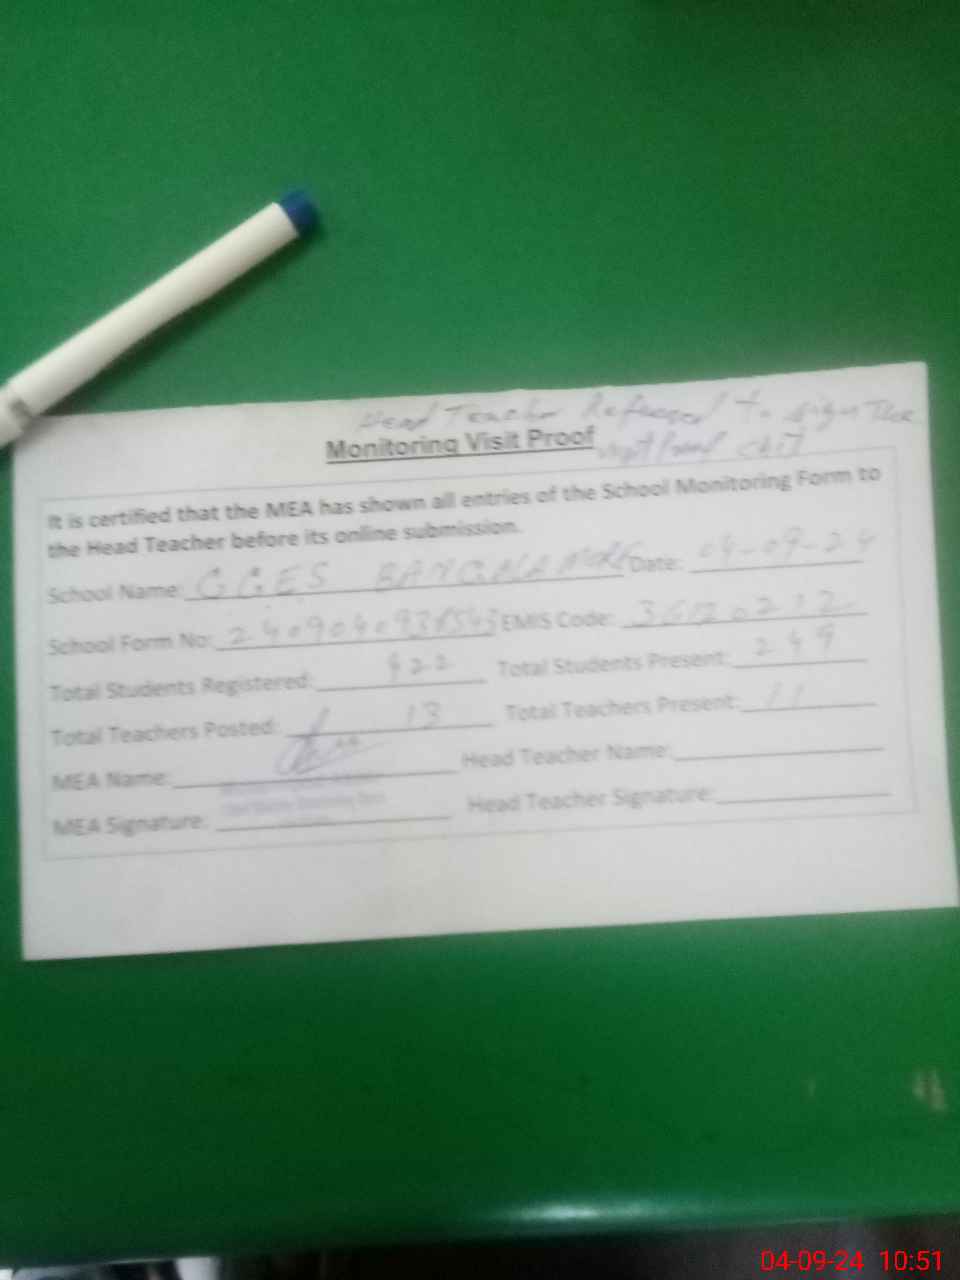 Head Teacher Refused to sign The
Monitoring Visit Proof
chit
It is certified that the MEA has shown all entries of the School Monitoring Form to
the Head Teacher before its online submission.
School Name: GGES Date: 04-09-24
School Form No: EMIS Code:
Total Students Registered: Total Students Present: 249
Total Teachers Posted: 13 Total Teachers Present: 11
MEA Name: Head Teacher Name:
MEA Signature: Head Teacher Signature:
04-09-24 10:51